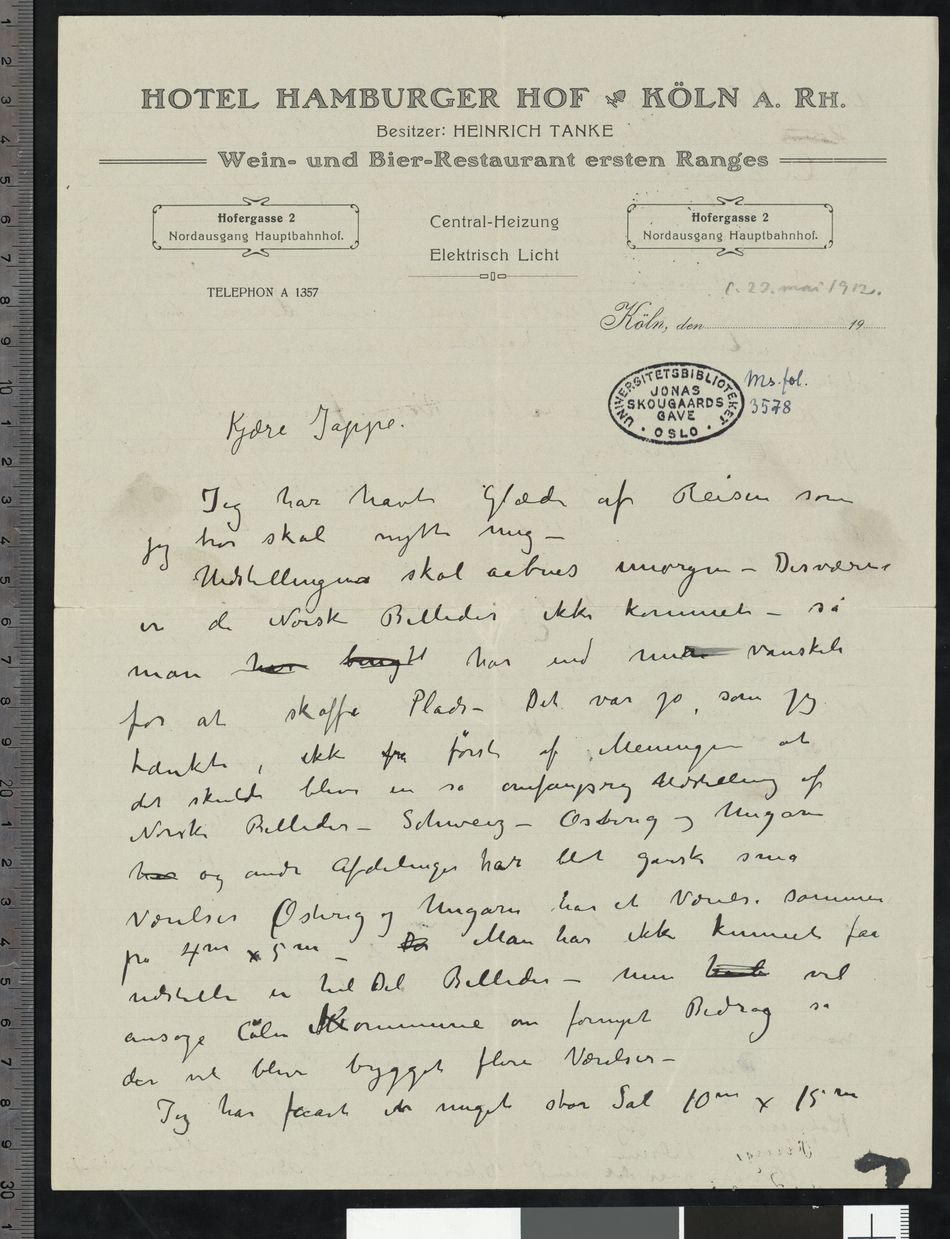 HOTEL HAMBURGER HOF KÖLN A. RH.
Besitzer: HEINRICH TANKE
Wein- und Bier-Restaurant ersten Ranges
Hofergasse 2
Nordausgang Hauptbahnhof.
Central-Heizung
Elektrisch Licht
Hofergasse 2
Nordausgang Hauptbahnhof.
TELEPHON A 1357
23. mai 1912.
Köln, den 19
UNIVERSITETSBIBLIOTEKET
JONAS
SKOUGAARDS
GAVE
OSLO
Ms. fol.
3578
Kjære Jappe.
Jeg har havt Glæde af Reisen som
jeg tror skal nytte mig –
Udstillingen skal aabnes imorgen – Desværre
er de Norske Billeder ikke kommet – så
man har havt end mere vanskeligt
for at skaffe Plads – Det var jo, som jeg
tænkte, ikke først af Meningen at
det skulde blive en så omfangsrig Udstilling af
Norske Billeder – Schweiz – Østerig og Ungarn
og andre Afdelinger har blot ganske små
Værelser Østerig og Ungarn har et Værelse sammen
på 4m x 5m – Man har ikke kunnet faa
udstille en hel Del Billeder – men vil
ansøge Cöln Kommune om fornyet Bidrag så
der vil blive bygget flere Værelser –
Jeg har faaet meget stor Sal 10m x 15m